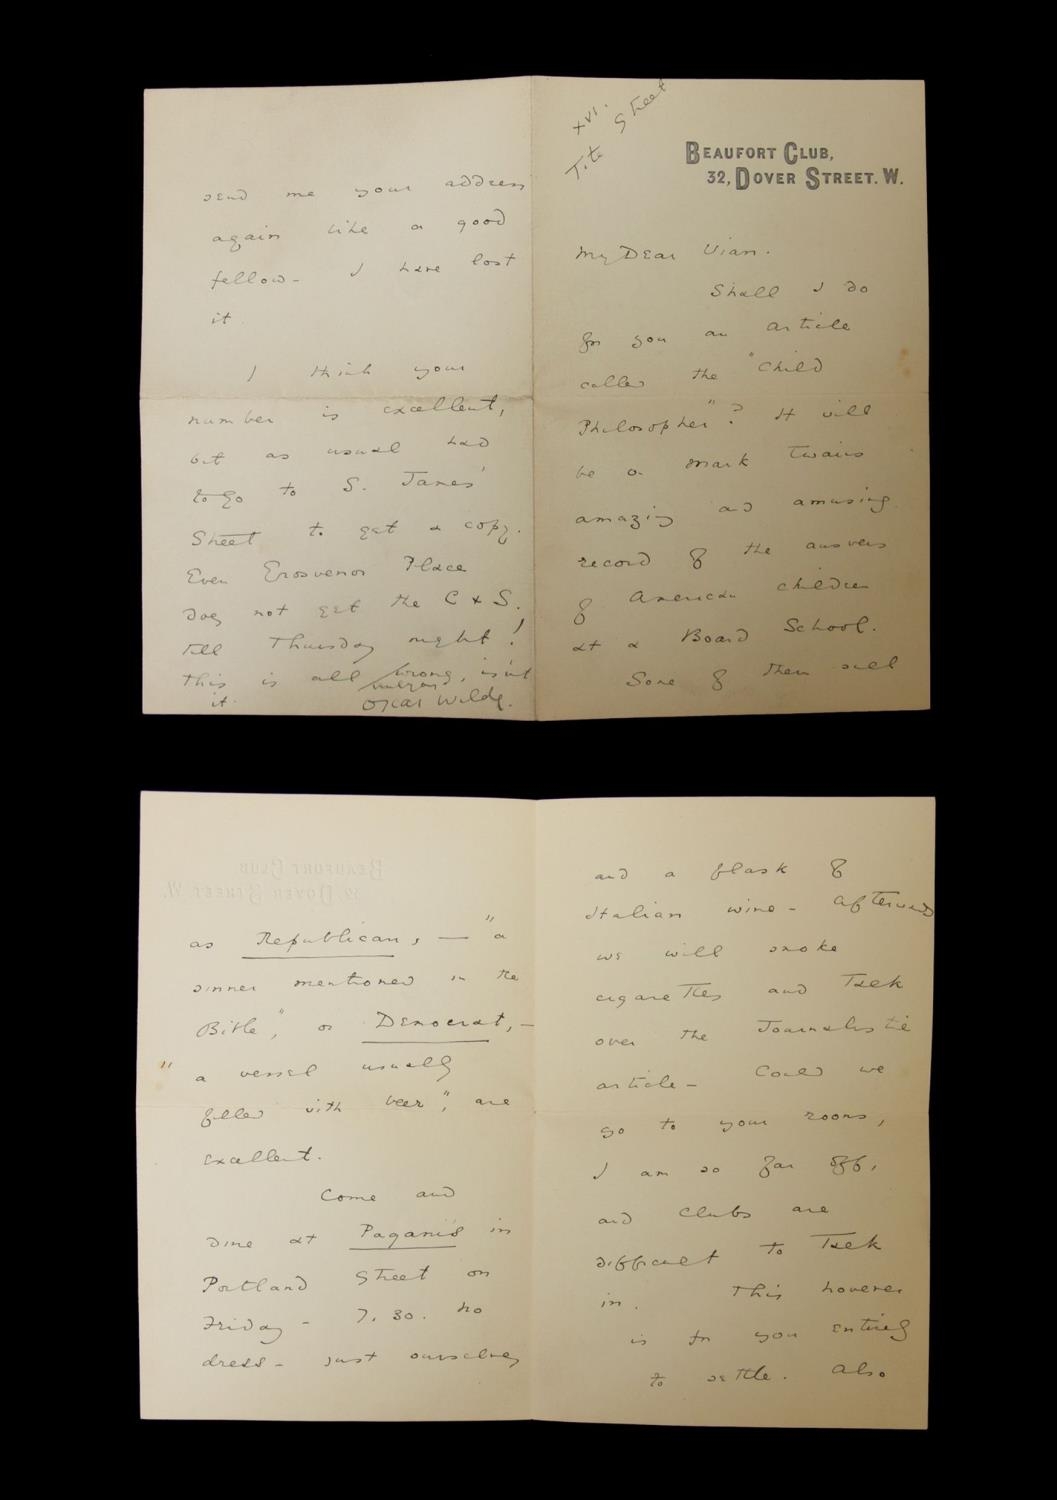 XVI.
Tite Street
BEAUFORT CLUB,
32, DOVER STREET. W.
My Dear Vian.
Shall I do
for you an article
called the "Child
Philosopher"? It will
be on Mark Twain's
amazing and amusing
record of the answers
of American children
at a Board School.
Some of them such
as Republican, — "a
sinner mentioned in the
Bible", or Democrat, —
"a vessel usually
filled with beer", are
excellent.
Come and
dine at Pagani's in
Portland Street on
Friday – 7.30. No
dress – just ourselves
and a flask of
Italian wine – afterwards
we will smoke
cigarettes and Talk
over the Journalistic
article – Could we
go to your rooms,
I am so far off,
and clubs are
difficult to Talk
in. This however
is for you entirely
to settle. Also
send me your address
again like a good
fellow – I have lost
it.
I think your
number is excellent,
but as usual had
to go to S. James'
Street to get a copy.
Even Grosvenor Place
does not get the C & S.
till Thursday night!
This is all wrong, isn't
it.
Oscar Wilde.
BEAUFORT CLUB
32 DOVER STREET W.